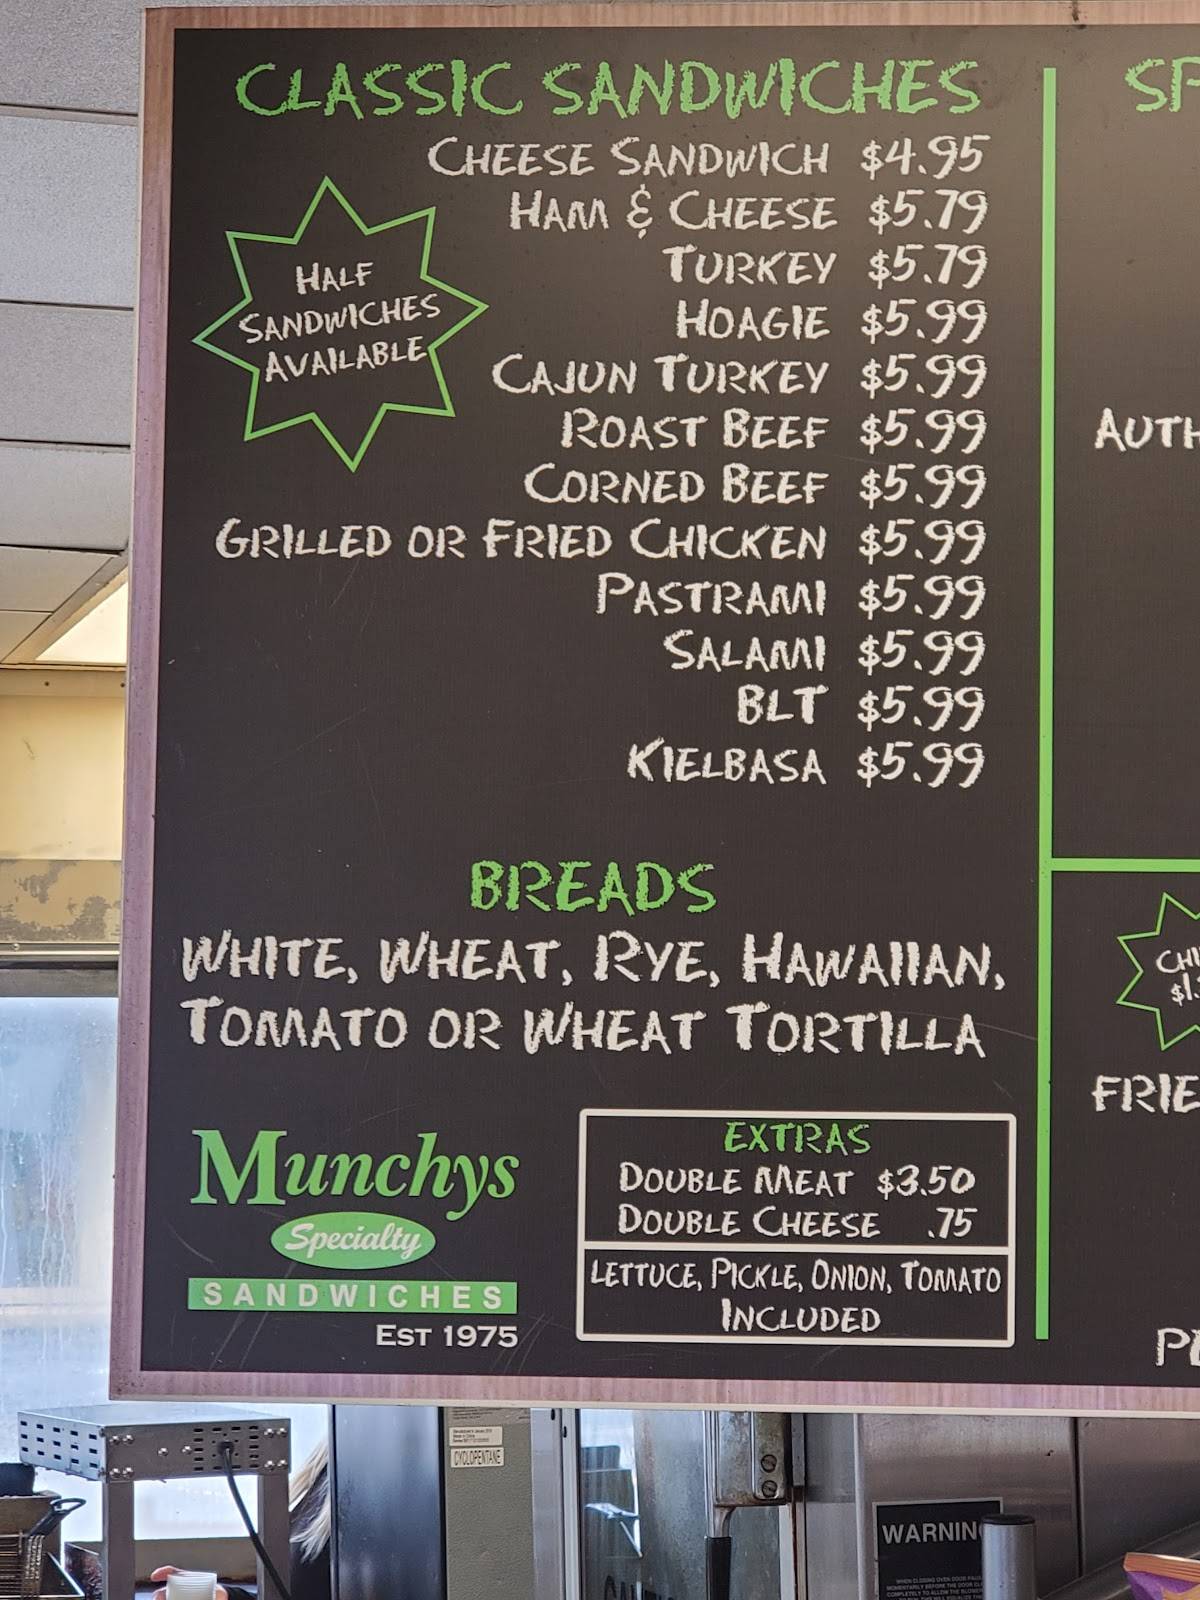 CLASSIC SANDWICHES
CHEESE SANDWICH $4.95
HAM & CHEESE $5.79
TURKEY $5.79
HOAGIE $5.99
CAJUN TURKEY $5.99
ROAST BEEF $5.99
CORNED BEEF $5.99
GRILLED OR FRIED CHICKEN $5.99
PASTRAMI $5.99
SALAMI $5.99
BLT $5.99
KIELBASA $5.99
HALF
SANDWICHES
AVAILABLE
BREADS
WHITE, WHEAT, RYE, HAWAIIAN,
TOMATO OR WHEAT TORTILLA
Munchys
Specialty
SANDWICHES
EST 1975
EXTRAS
DOUBLE MEAT $3.50
DOUBLE CHEESE .75
LETTUCE, PICKLE, ONION, TOMATO
INCLUDED
SP
AUTH
CHI
$1.
FRIE
PE
CYCLOPENTANE
WARNIN